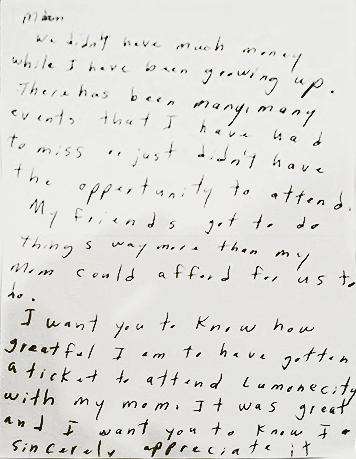 Mom
We didn't have much money
while I have been growing up.
There has been many, many
events that I have had
to miss or just didn't have
the opportunity to attend.
My friends got to do
things way more than my
Mom could afford for us to
do.
I want you to know how
greatful I am to have gotten
a ticket to attend Lumonecity
with my mom. It was great
and I want you to know I
sincerely appreciate it